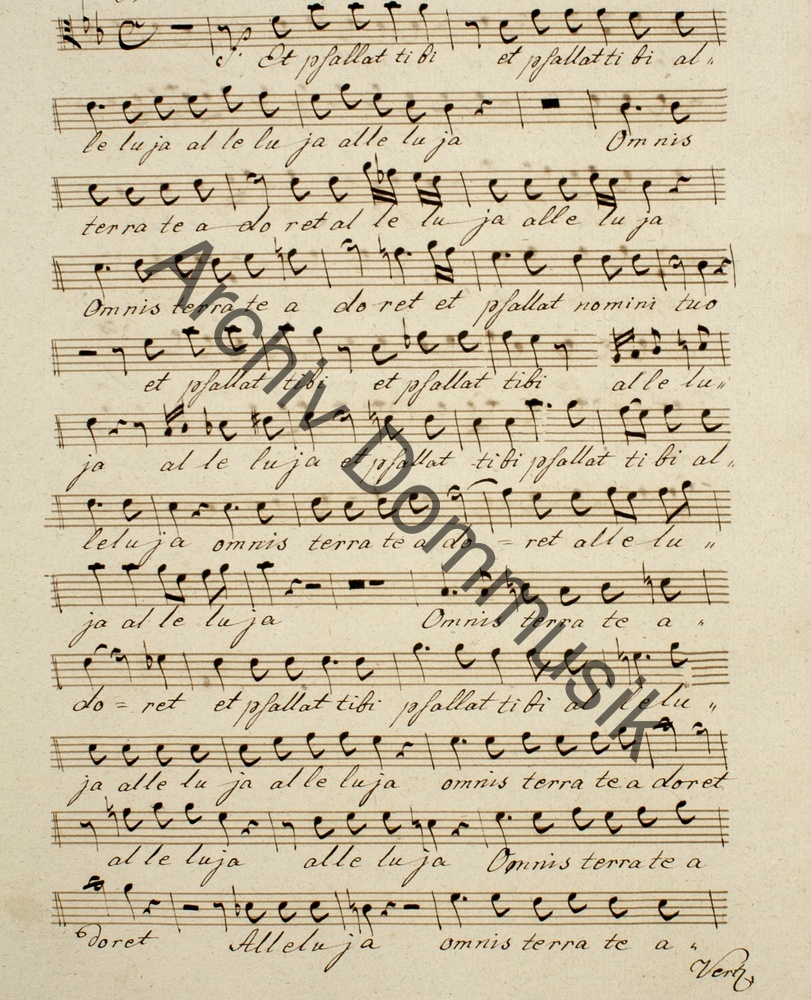 S. Et psallat tibi et psallat ti bi al„
le lu ja al le lu ja alle lu ja Omnis
terra te a do ret al le lu ja alle lu ja
Omnis terra te a do ret et psallat nomini tuo
et psallat tibi et psallat tibi al le lu„
ja al le lu ja et psallat tibi psallat ti bi al„
lelu ja omnis terra te a do = ret alle lu „
ja al le lu ja Omnis terra te a „
do = ret et psallat tibi psallat ti bi al lelu „
ja alle lu ja al le lu ja omnis terra te a doret
al le lu ja alle lu ja Omnis terra te a
doret Allelu ja omnis terra te a „
Archiv Dommusik